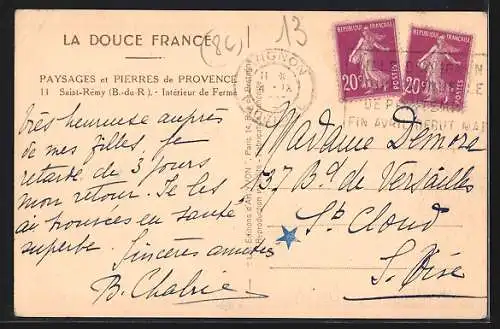 LA DOUCE FRANCE
(84)
13
PAYSAGES et PIERRES de PROVENCE
11 Saint-Rémy (B.-du-R.) - Intérieur de Ferme
Très heureuse auprès
de mes filles, je
retarde de 3 jours
mon retour. Je les
ai trouvées en santé
superbe.
Sincères amitiés
B. Chabrie
AVIGNON
RÉPUBLIQUE FRANÇAISE
20c
POSTES
RÉPUBLIQUE FRANÇAISE
20c
POSTES
FIN AVRIL DEBUT MAI
Madame Demore
37 Bd de Versailles
St Cloud
S. Oise